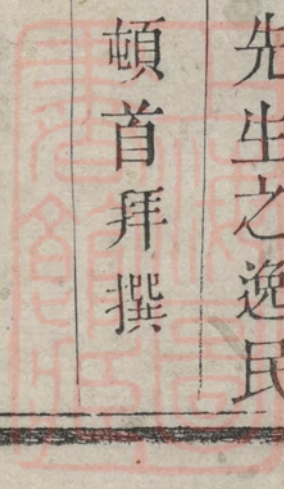 先生之逸民
頓首拜撰